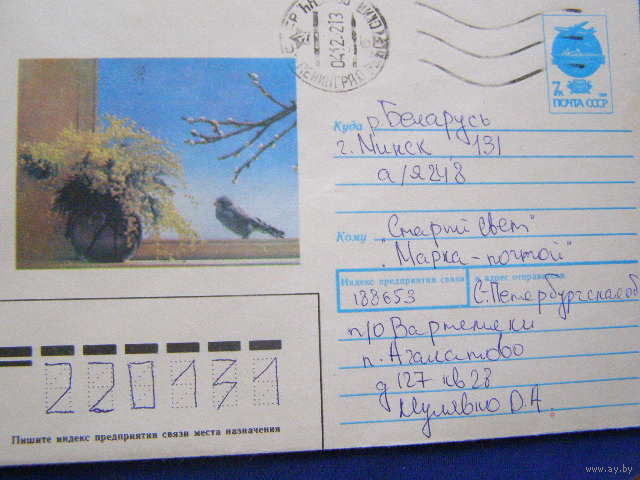 7 к
ПОЧТА СССР
Куда р. Беларусь
г. Минск 131
а/я 248
Кому "Старый свет"
"Марка-почтой"
Индекс предприятия связи и адрес отправителя
188653 С.Петербургская об
п/о Вартемяки
п. Агалатово
д 127 кв 28
220131
Пишите индекс предприятия связи места назначения
www.ay.by